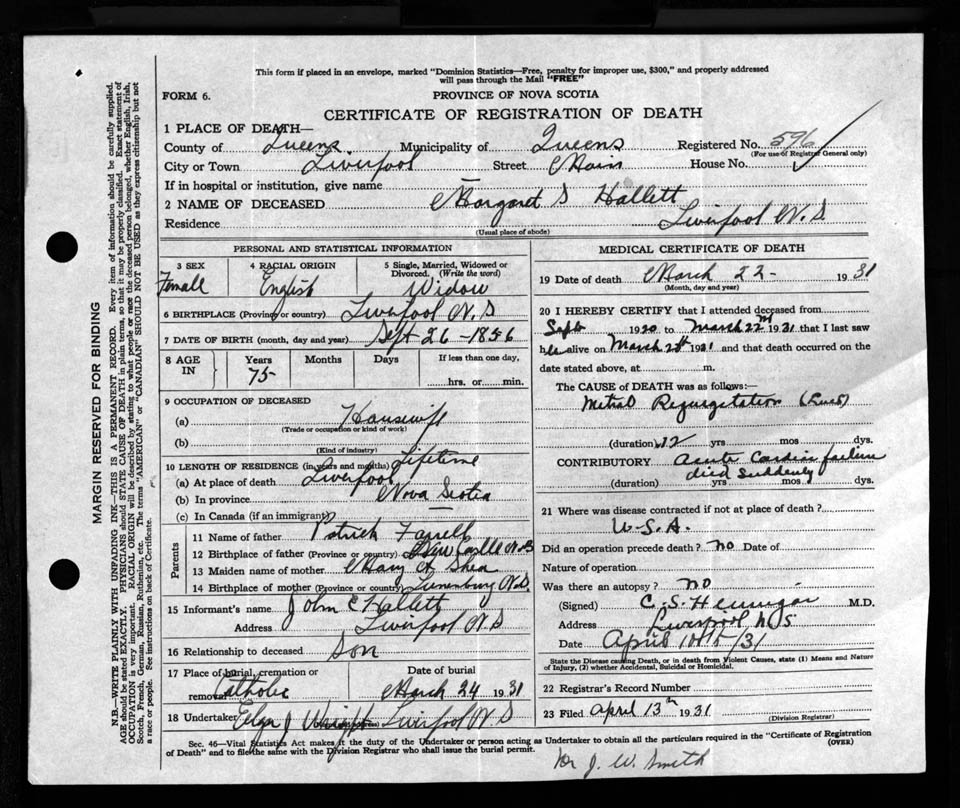 This form if placed in an envelope, marked "Dominion Statistics—Free, penalty for improper use, $300," and properly addressed
will pass through the Mail "FREE"
FORM 6.
PROVINCE OF NOVA SCOTIA
CERTIFICATE OF REGISTRATION OF DEATH
1 PLACE OF DEATH—
County of Queens Municipality of Queens Registered No. 596
(For use of Registrar General only)
City or Town Liverpool Street Main House No.
If in hospital or institution, give name —
2 NAME OF DECEASED Margaret S Hallett
Residence Liverpool N.S
(Usual place of abode)
PERSONAL AND STATISTICAL INFORMATION
3 SEX 4 RACIAL ORIGIN 5 Single, Married, Widowed or
Divorced. (Write the word)
Female English Widow
6 BIRTHPLACE (Province or country) Liverpool N.S
7 DATE OF BIRTH (month, day and year) Sept 26 - 1856
8 AGE IN Years Months Days If less than one day,
75- hrs. or min.
9 OCCUPATION OF DECEASED
(a) Housewife
(Trade or occupation or kind of work)
(b)
(Kind of industry)
10 LENGTH OF RESIDENCE (in years and months) Lifetime
(a) At place of death Liverpool
(b) In province Nova Scotia
(c) In Canada (if an immigrant) —
Parents
11 Name of father Patrick Farrell
12 Birthplace of father (Province or country) New Castle N.B
13 Maiden name of mother Mary A Shea
14 Birthplace of mother (Province or country) Lunenburg N.S.
15 Informant's name John C Hallett
Address Liverpool N.S
16 Relationship to deceased Son
17 Place of burial, cremation or Date of burial
removal Catholic March 24 1931
18 Undertaker J Liverpool N.S
MEDICAL CERTIFICATE OF DEATH
19 Date of death March 22- 1931
(Month, day and year)
20 I HEREBY CERTIFY that I attended deceased from
Sept 1920 to March 22nd 1931 that I last saw
her alive on March 1931 and that death occurred on the
date stated above, at m.
The CAUSE of DEATH was as follows:—
Mitral Regurgitation
(duration) 12 yrs mos dys.
CONTRIBUTORY Acute Cardiac failure
died suddenly
(duration) yrs mos dys.
21 Where was disease contracted if not at place of death?
U.S.A.
Did an operation precede death? no Date of
Nature of operation
Was there an autopsy? no
(Signed) C. S. Hennigar M.D.
Address Liverpool N.S
Date April /31
State the Disease causing Death, or in death from Violent Causes, state (1) Means and Nature
of Injury, (2) whether Accidental, Suicidal or Homicidal.
22 Registrar's Record Number
23 Filed April 13th 1931
(Division Registrar)
Sec. 46—Vital Statistics Act makes it the duty of the Undertaker or person acting as Undertaker to obtain all the particulars required in the "Certificate of Registration
of Death" and to file the same with the Division Registrar who shall issue the burial permit. (OVER)
Dr J. W. Smith
MARGIN RESERVED FOR BINDING
N.B.—WRITE PLAINLY WITH UNFADING INK—THIS IS A PERMANENT RECORD. Every item of information should be carefully supplied.
AGE should be stated EXACTLY. PHYSICIANS should STATE CAUSE OF DEATH in plain terms, so that it may be properly classified. Exact statement of
OCCUPATION is very important. RACIAL ORIGIN will be described by stating to what people or race the deceased person belonged, whether English, Irish,
Scotch, French, German, Russian, Ruthenian, etc. The terms "AMERICAN" or "CANADIAN" SHOULD NOT BE USED as they express citizenship but not
a race or people. See instructions on back of Certificate.